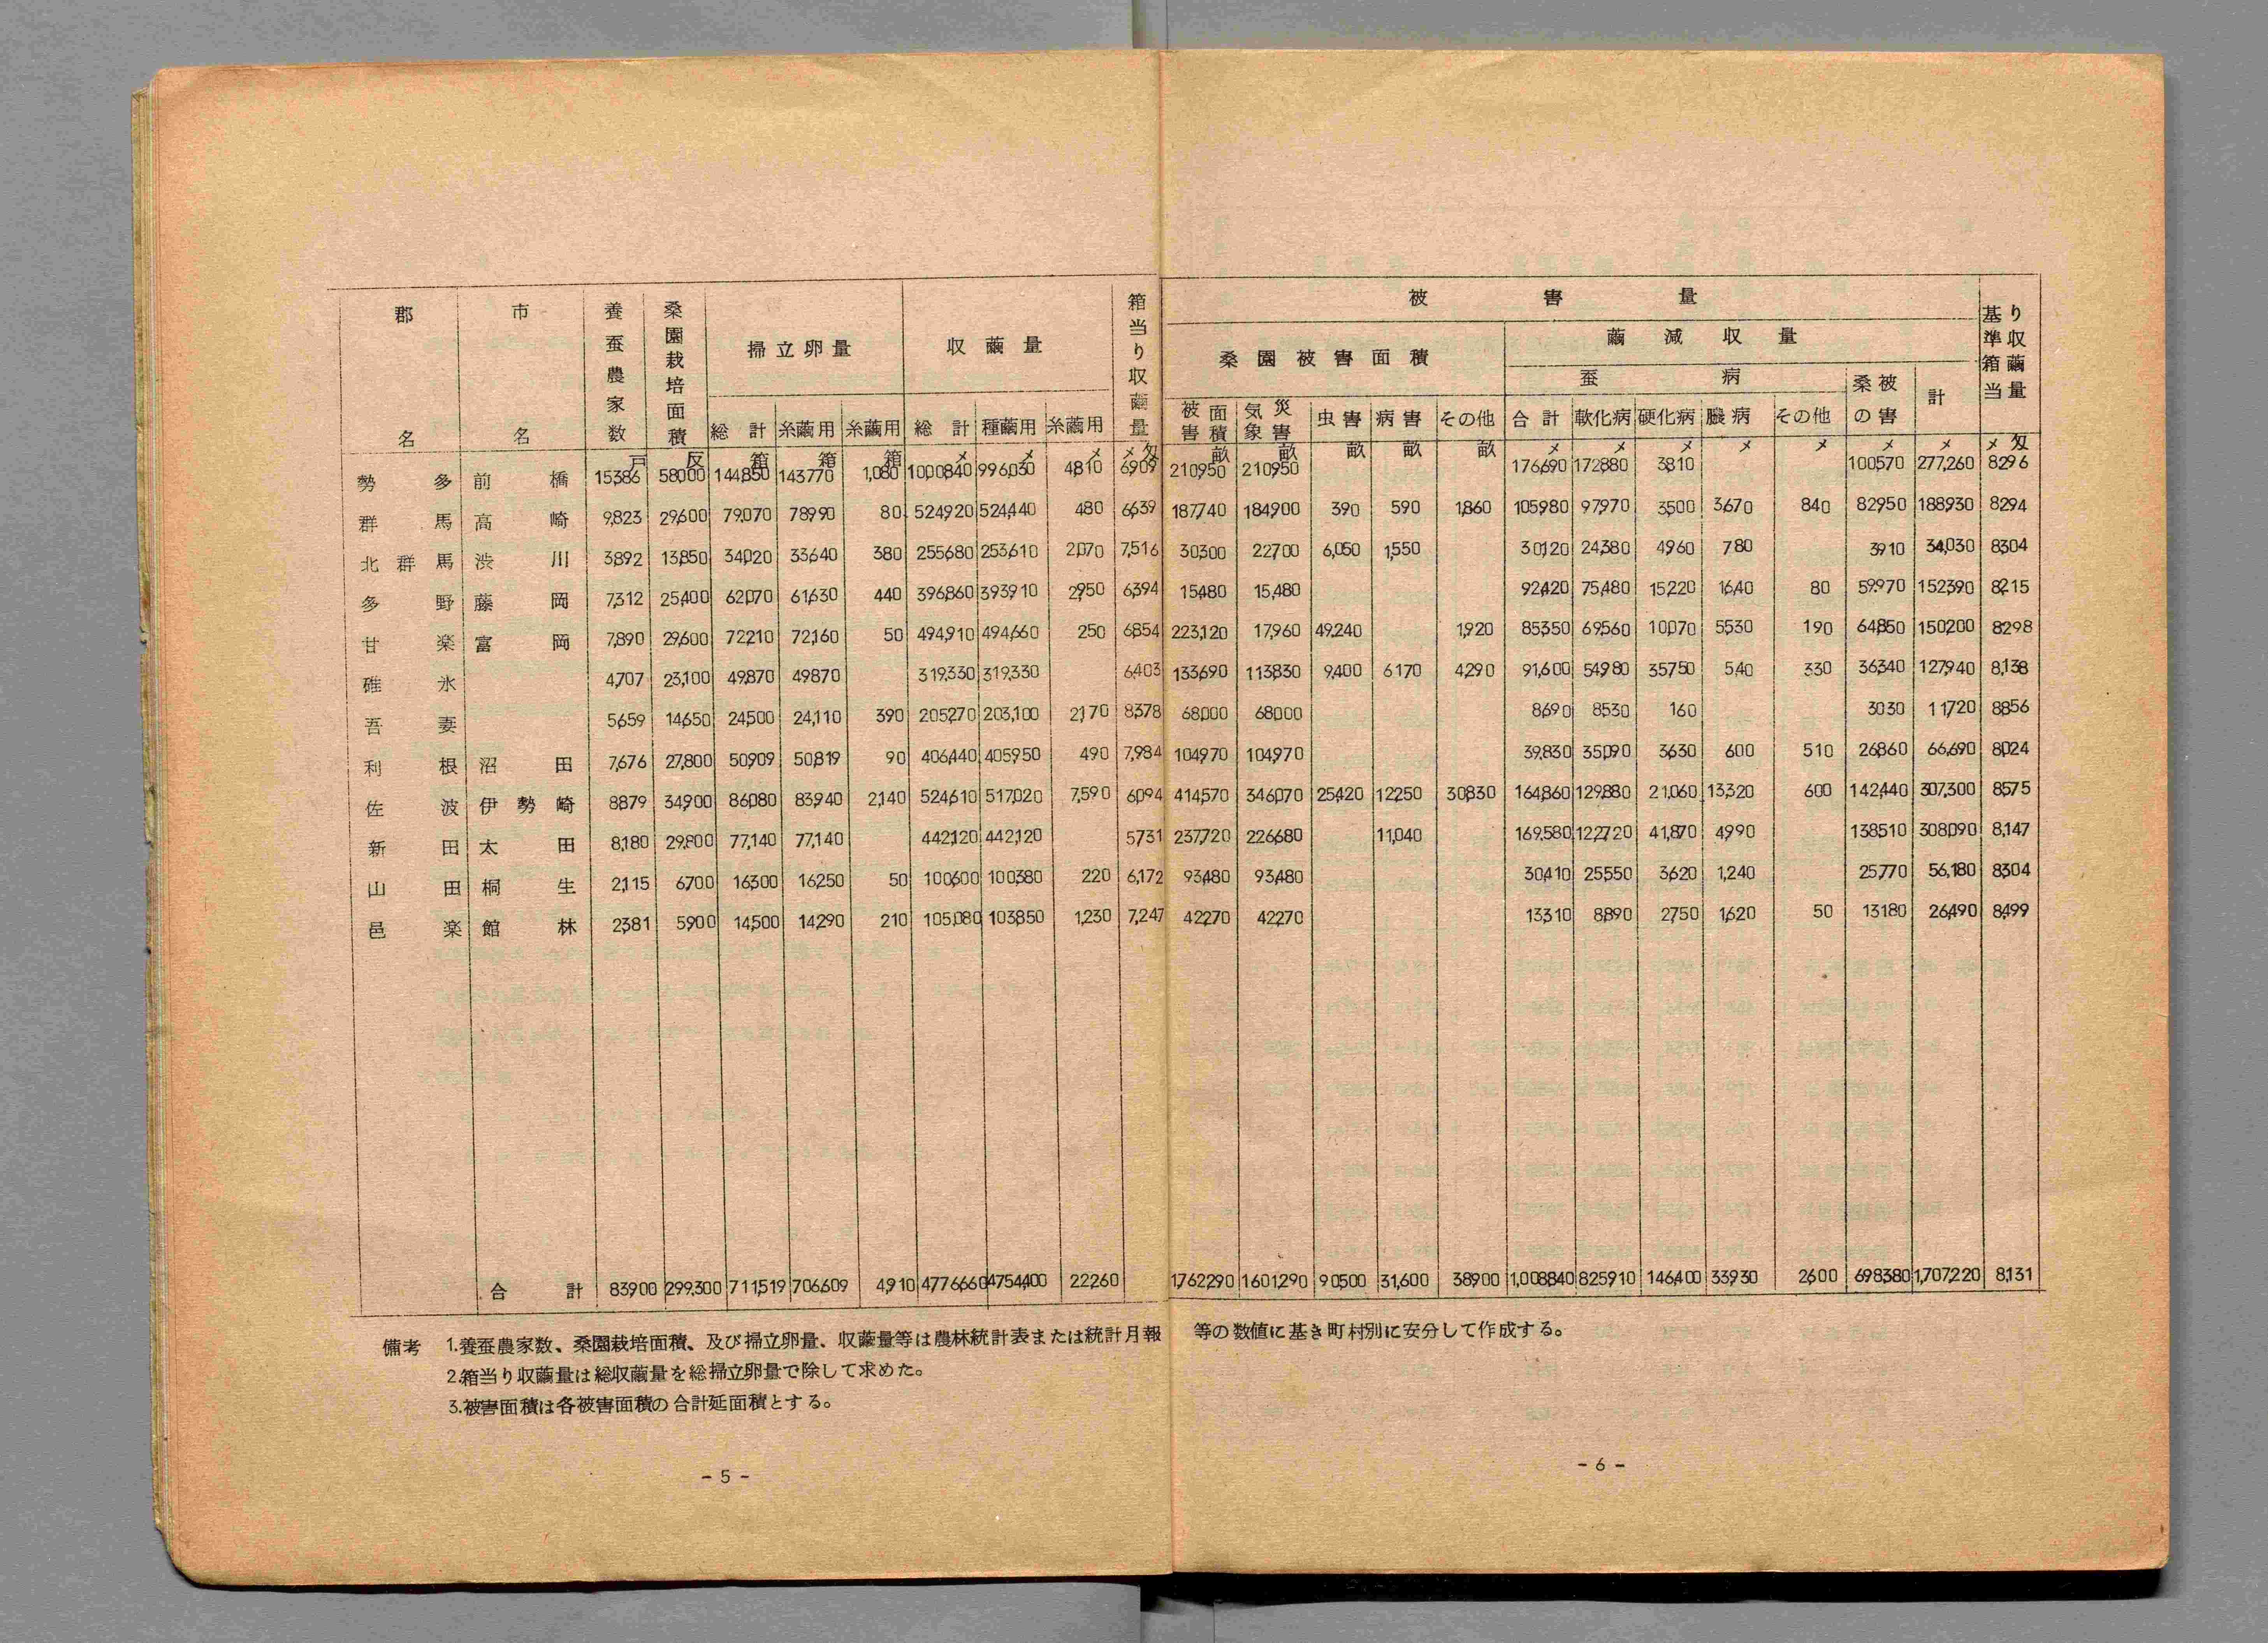 郡名 市名 養蚕農家数 桑園栽培面積 掃立卵量 収繭量 箱当り収繭量 被害量 基準箱当り収繭量
桑園被害面積 繭減収量
蚕病 桑の被害 計
総計 糸繭用 糸繭用 総計 種繭用 糸繭用 被害面積 気象災害 虫害 病害 その他 合計 軟化病 硬化病 膿病 その他
戸 反 箱 箱 箱 メ メ メ メ匁 畝 畝 畝 畝 畝 メ メ メ メ メ メ メ メ匁
勢多 前橋 15,386 58,000 144,850 143,770 1,080 1,000,840 996,030 4,810 6,909 210,950 210,950 176,690 172,880 3,810 100,570 277,260 8,296
群馬 高崎 9,823 29,600 79,070 78,990 80 524,920 524,440 480 6,639 187,740 184,900 390 590 1,860 105,980 97,970 3,500 3,670 840 82,950 188,930 8,294
北群馬 渋川 3,892 13,850 34,020 33,640 380 255,680 253,610 2,070 7,516 30,300 22,700 6,050 1,550 30,120 24,380 4,960 780 3,910 34,030 8,304
多野 藤岡 7,312 25,400 62,070 61,630 440 396,860 393,910 2,950 6,394 15,480 15,480 92,420 75,480 15,220 1,640 80 59,970 152,390 8,215
甘楽 富岡 7,890 29,600 72,210 72,160 50 494,910 494,660 250 6,854 223,120 17,960 49,240 1,920 85,350 69,560 10,070 5,530 190 64,850 150,200 8,298
碓氷 4,707 23,100 49,870 49,870 319,330 319,330 6,403 133,690 113,830 9,400 6,170 4,290 91,600 54,980 35,750 540 330 36,340 127,940 8,138
吾妻 5,659 14,650 24,500 24,110 390 205,270 203,100 2,170 8,378 68,000 68,000 8,690 8,530 160 3,030 11,720 8,856
利根 沼田 7,676 27,800 50,909 50,819 90 406,440 405,950 490 7,984 104,970 104,970 39,830 35,090 3,630 600 510 26,860 66,690 8,024
佐波 伊勢崎 8,879 34,900 86,080 83,940 2,140 524,610 517,020 7,590 6,094 414,570 346,070 25,420 12,250 30,830 164,860 129,880 21,060 13,320 600 142,440 307,300 8,575
新田 太田 8,180 29,800 77,140 77,140 442,120 442,120 5,731 237,720 226,680 11,040 169,580 122,720 41,870 4,990 138,510 308,090 8,147
山田 桐生 2,115 6,700 16,300 16,250 50 100,600 100,380 220 6,172 93,480 93,480 30,410 25,550 3,620 1,240 25,770 56,180 8,304
邑楽 館林 2,381 5,900 14,500 14,290 210 105,080 103,850 1,230 7,247 42,270 42,270 13,310 8,890 2,750 1,620 50 13,180 26,490 8,499
合計 83,900 299,300 711,519 706,609 4,910 4,776,660 4,754,400 22,260 1,762,290 1,601,290 90,500 31,600 38,900 1,008,840 825,910 146,400 33,930 2,600 698,380 1,707,220 8,131
備考 1.養蚕農家数、桑園栽培面積、及び掃立卵量、収繭量等は農林統計表または統計月報等の数値に基き町村別に安分して作成する。
2.箱当り収繭量は総収繭量を総掃立卵量で除して求めた。
3.被害面積は各被害面積の合計延面積とする。
- 5 -
- 6 -